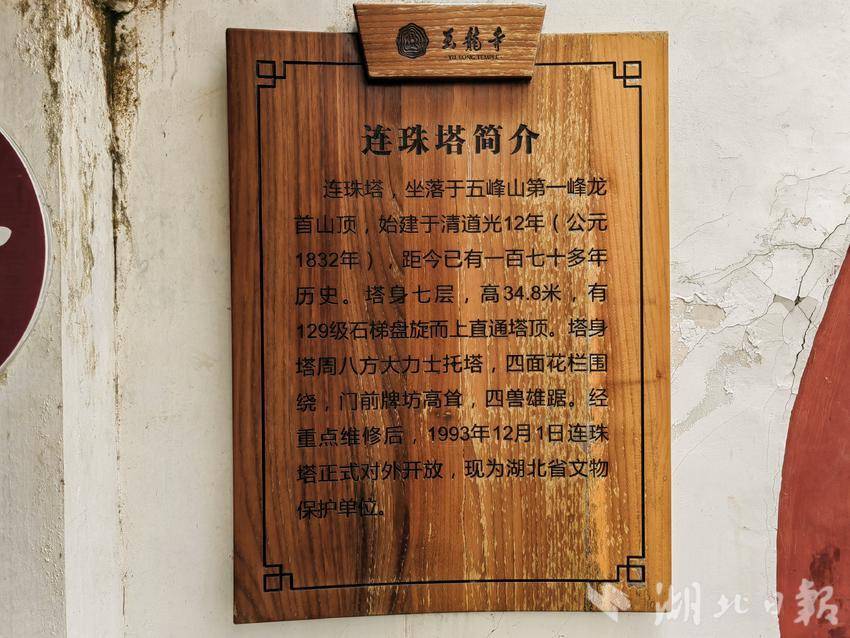 玉龍寺
YU LONG TEMPLE
连珠塔简介
连珠塔，坐落于五峰山第一峰龙
首山顶，始建于清道光12年（公元
1832年），距今已有一百七十多年
历史。塔身七层，高34.8米，有
129级石梯盘旋而上直通塔顶。塔身
塔周八方大力士托塔，四面花栏围
绕，门前牌坊高耸，四兽雄踞。经
重点维修后，1993年12月1日连珠
塔正式对外开放，现为湖北省文物
保护单位。
湖北日報